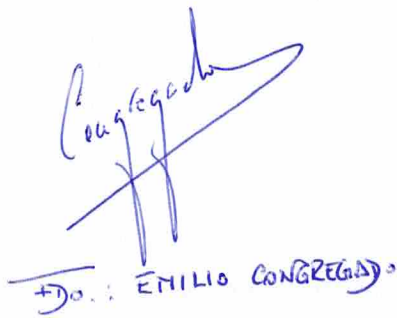 Congregado
FDO.: EMILIO CONGREGADO